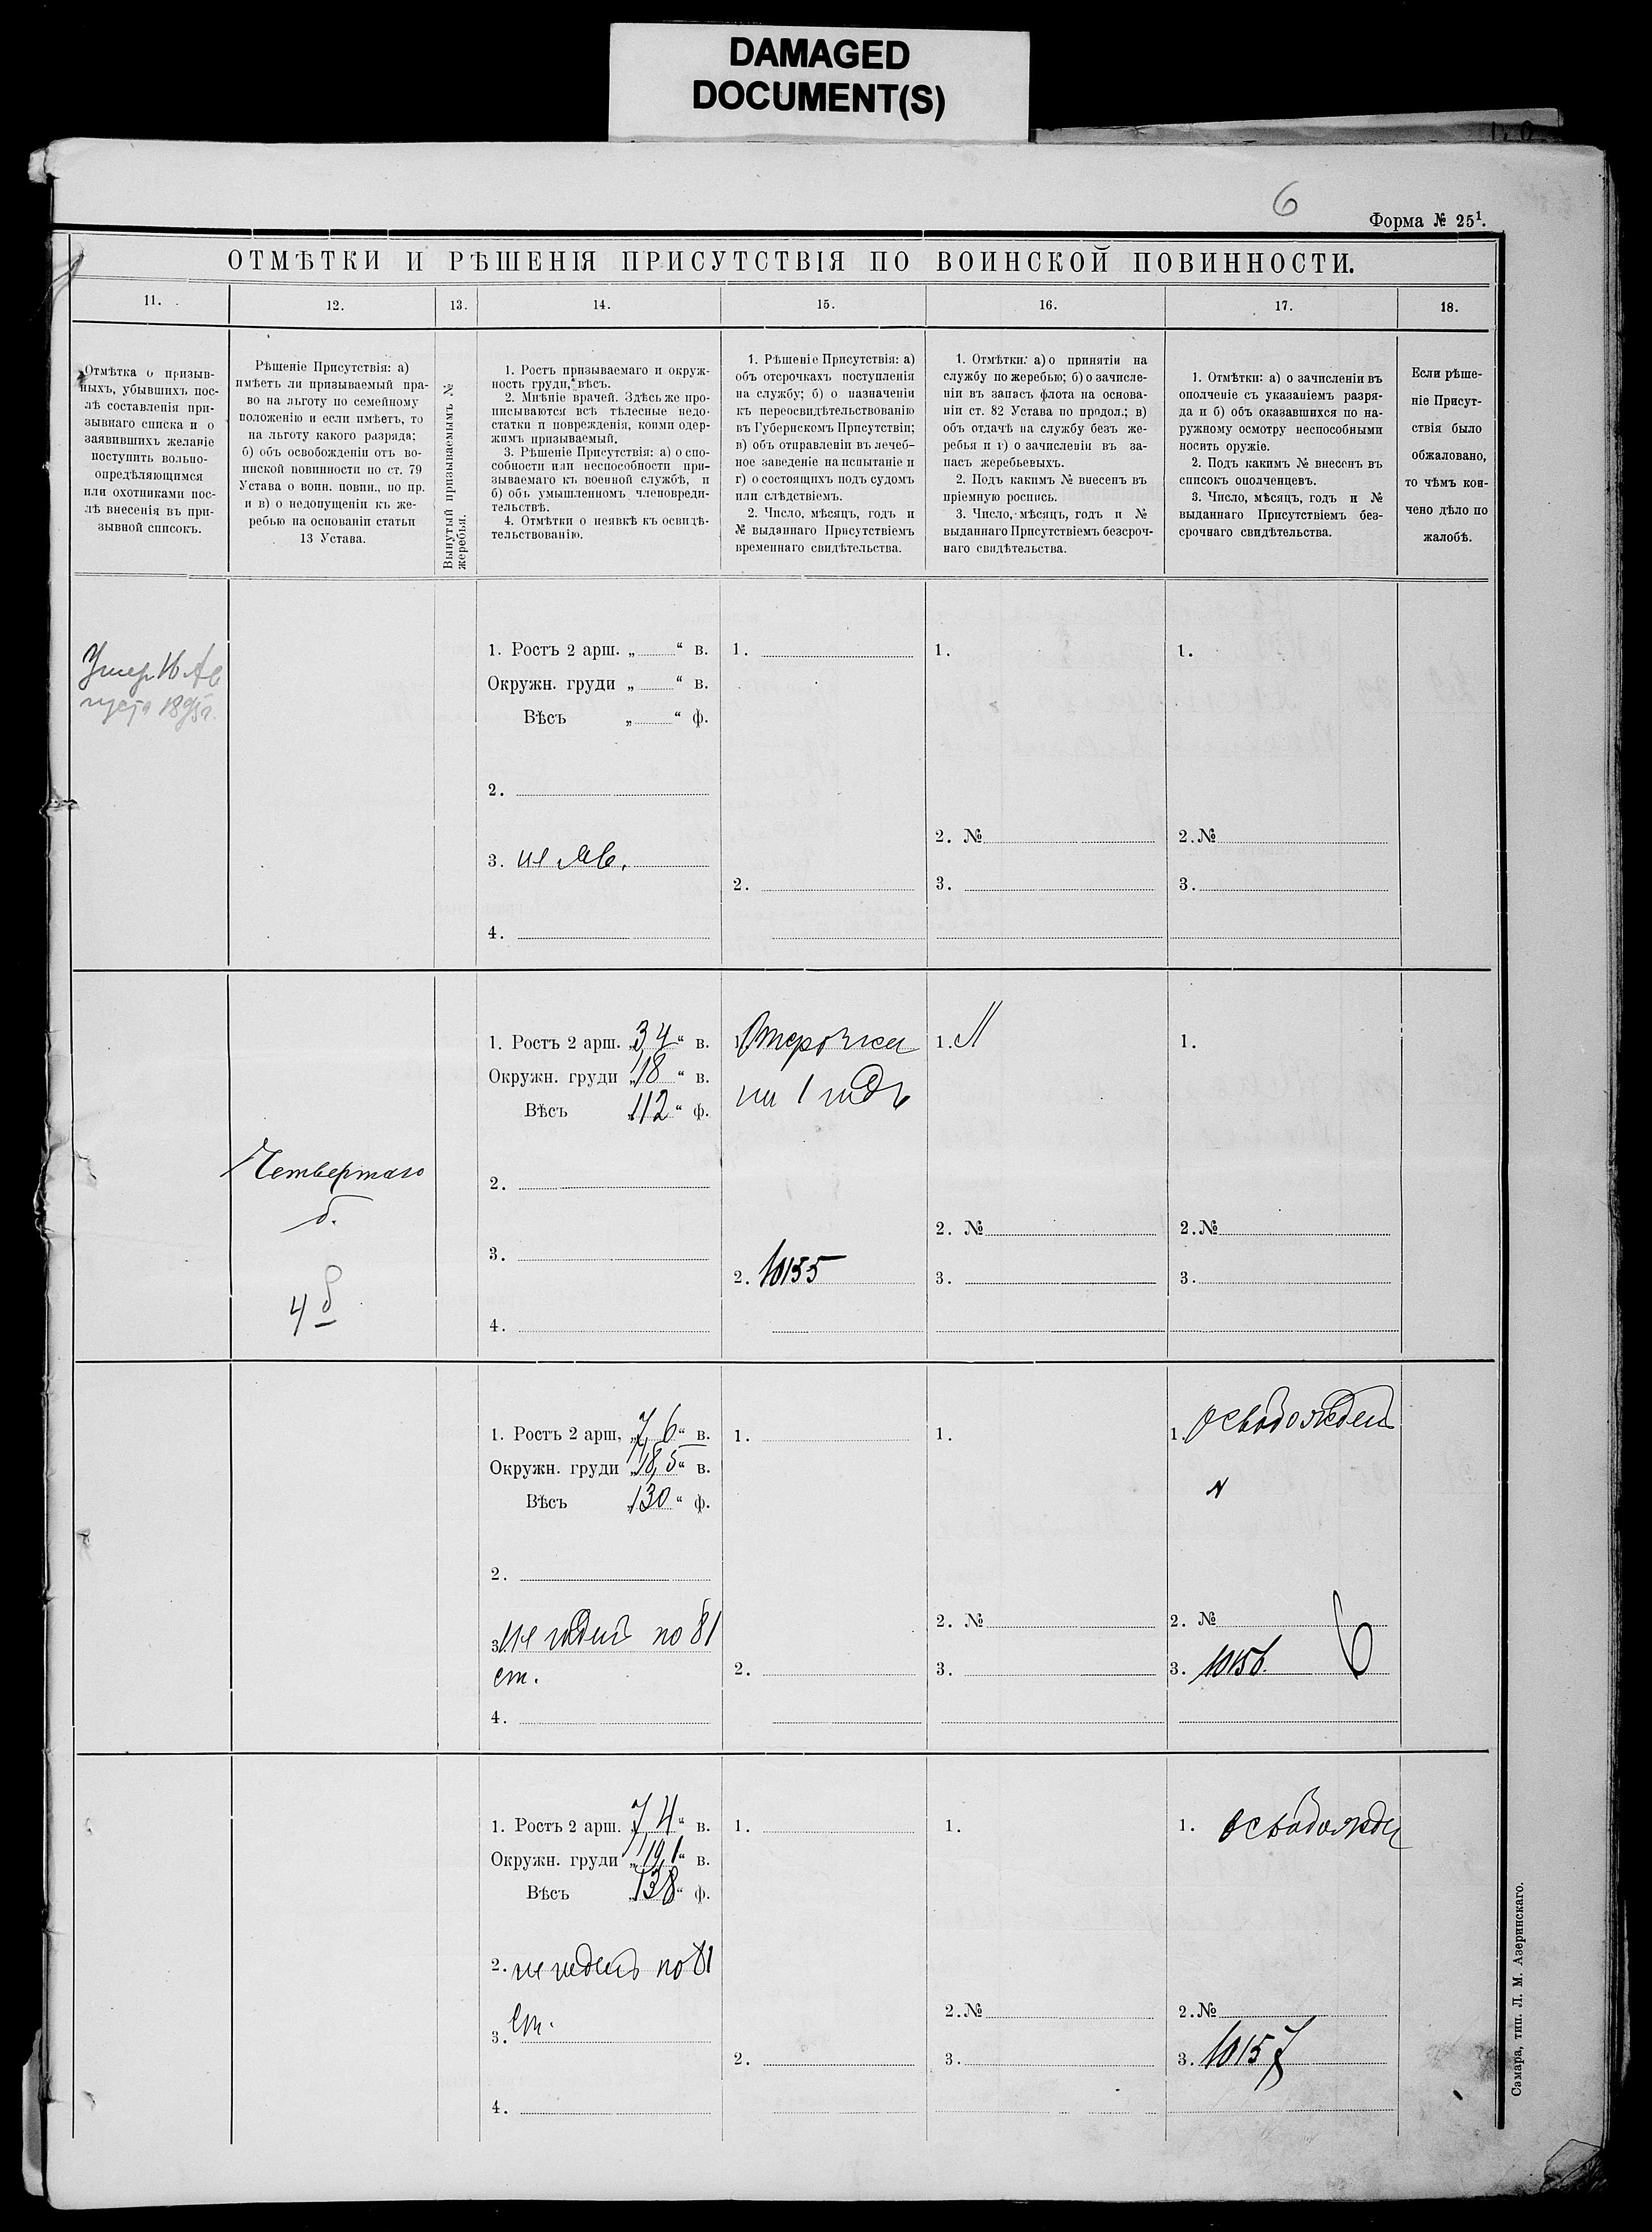 DAMAGED
DOCUMENT(S)
6
Форма № 25¹.
ОТМѢТКИ И РѢШЕНІЯ ПРИСУТСТВІЯ ПО ВОИНСКОЙ ПОВИННОСТИ.
11. 12. 13. 14. 15. 16. 17. 18.
Отмѣтка о призыв-
ныхъ, убывшихъ пос-
лѣ составленія при-
зывнаго списка и о
заявившихъ желаніе
поступить вольно-
опредѣляющимся
или охотниками пос-
лѣ внесенія въ при-
зывной списокъ.
Рѣшеніе Присутствія: а)
имѣетъ ли призываемый пра-
во на льготу по семейному
положенію и если имѣетъ, то
на льготу какого разряда;
б) объ освобожденіи отъ во-
инской повинности по ст. 79
Устава о воин. повин., по пр.
и в) о недопущеніи къ же-
ребью на основаніи статьи
13 Устава.
Вынутый призываемымъ №
жеребья.
1. Ростъ призываемаго и окруж-
ность груди, вѣсъ.
2. Мнѣніе врачей. Здѣсь же про-
писываются всѣ тѣлесные недо-
статки и поврежденія, коими одер-
жимъ призываемый.
3. Рѣшеніе Присутствія: а) о спо-
собности или неспособности при-
зываемаго къ военной службѣ, и
б) объ умышленномъ членовреди-
тельствѣ.
4. Отмѣтки о неявкѣ къ освидѣ-
тельствованію.
1. Рѣшеніе Присутствія: а)
объ отсрочкахъ поступленія
на службу; б) о назначеніи
къ переосвидѣтельствованію
въ Губернскомъ Присутствіи;
в) объ отправленіи въ лечеб-
ное заведеніе на испытаніе и
г) о состоящихъ подъ судомъ
или слѣдствіемъ.
2. Число, мѣсяцъ, годъ и
№ выданнаго Присутствіемъ
временнаго свидѣтельства.
1. Отмѣтки: а) о принятіи на
службу по жеребью; б) о зачисле-
ніи въ запасъ флота на основа-
ніи ст. 82 Устава по продол.; в)
объ отдачѣ на службу безъ же-
ребья и г) о зачисленіи въ за-
пасъ жеребьевыхъ.
2. Подъ какимъ № внесенъ въ
пріемную роспись.
3. Число, мѣсяцъ, годъ и №
выданнаго Присутствіемъ безсроч-
наго свидѣтельства.
1. Отмѣтки: а) о зачисленіи въ
ополченіе съ указаніемъ разря-
да и б) объ оказавшихся по на-
ружному осмотру неспособными
носить оружіе.
2. Подъ какимъ № внесенъ въ
списокъ ополченцевъ.
3. Число, мѣсяцъ, годъ и №
выданнаго Присутствіемъ без-
срочнаго свидѣтельства.
Если рѣше-
ніе Присут-
ствія было
обжаловано,
то чѣмъ кон-
чено дѣло по
жалобѣ.
Умер 16 Ав
густа 1895 г.
1. Ростъ 2 арш. „ “ в.
Окружн. груди „ “ в.
Вѣсъ „ “ ф.
2.
3. не яв.
4.
1.
2.
1.
2. №
3.
1.
2. №
3.
Четвертаго
б.
4 б
1. Ростъ 2 арш. „3,4“ в.
Окружн. груди „18“ в.
Вѣсъ „112“ ф.
2.
3.
4.
1. Отсрочка
на 1 годъ
2. 10155
1.
2. №
3.
1.
2. №
3.
1. Ростъ 2 арш. „7,6“ в.
Окружн. груди „18,5“ в.
Вѣсъ „130“ ф.
2.
3. не годенъ по 81
ст.
4.
1.
2.
1.
2. №
3.
1. Освобожденъ
2. № 6
3. 10156.
1. Ростъ 2 арш. „7,4“ в.
Окружн. груди „19,1“ в.
Вѣсъ „138“ ф.
2. не годенъ по 81
3. ст.
4.
1.
2.
1.
2. №
3.
1. Освобожден
2. №
3. 10157
Самара, тип. Л. М. Азеринскаго.